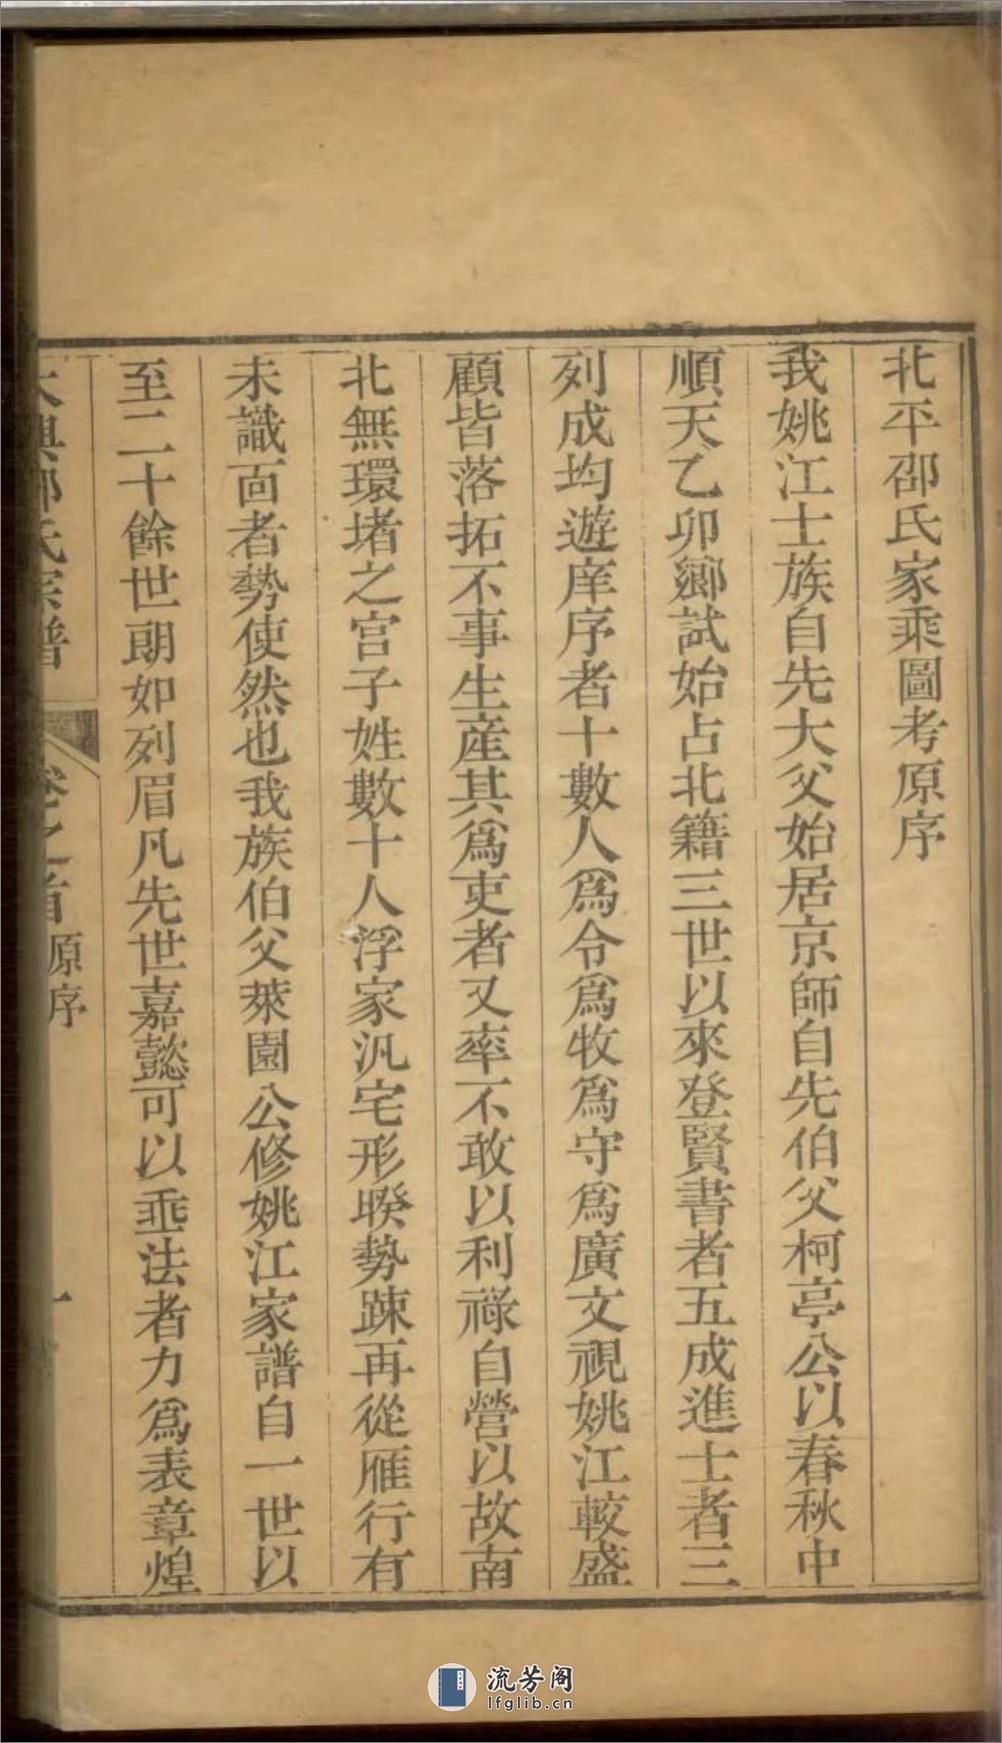 北平邵氏家乘圖考原序
我姚江士族自先大父始居京師自先伯父柯亭公以春秋中
順天乙卯鄉試始占北籍三世以來登賢書者五成進士者三
列成均遊庠序者十數人爲令爲牧爲守爲廣文視姚江較盛
顧皆落拓不事生產其爲吏者又率不敢以利祿自營以故南
北無環堵之宫子姓數十人浮家汎宅形暌勢踈再從雁行有
未識面者勢使然也我族伯父萊園公修姚江家譜自一世以
至二十餘世朗如列眉凡先世嘉懿可以垂法者力爲表章煌
大興邵氏宗譜 卷之首 原序 一
流芳阁
lfglib.cn